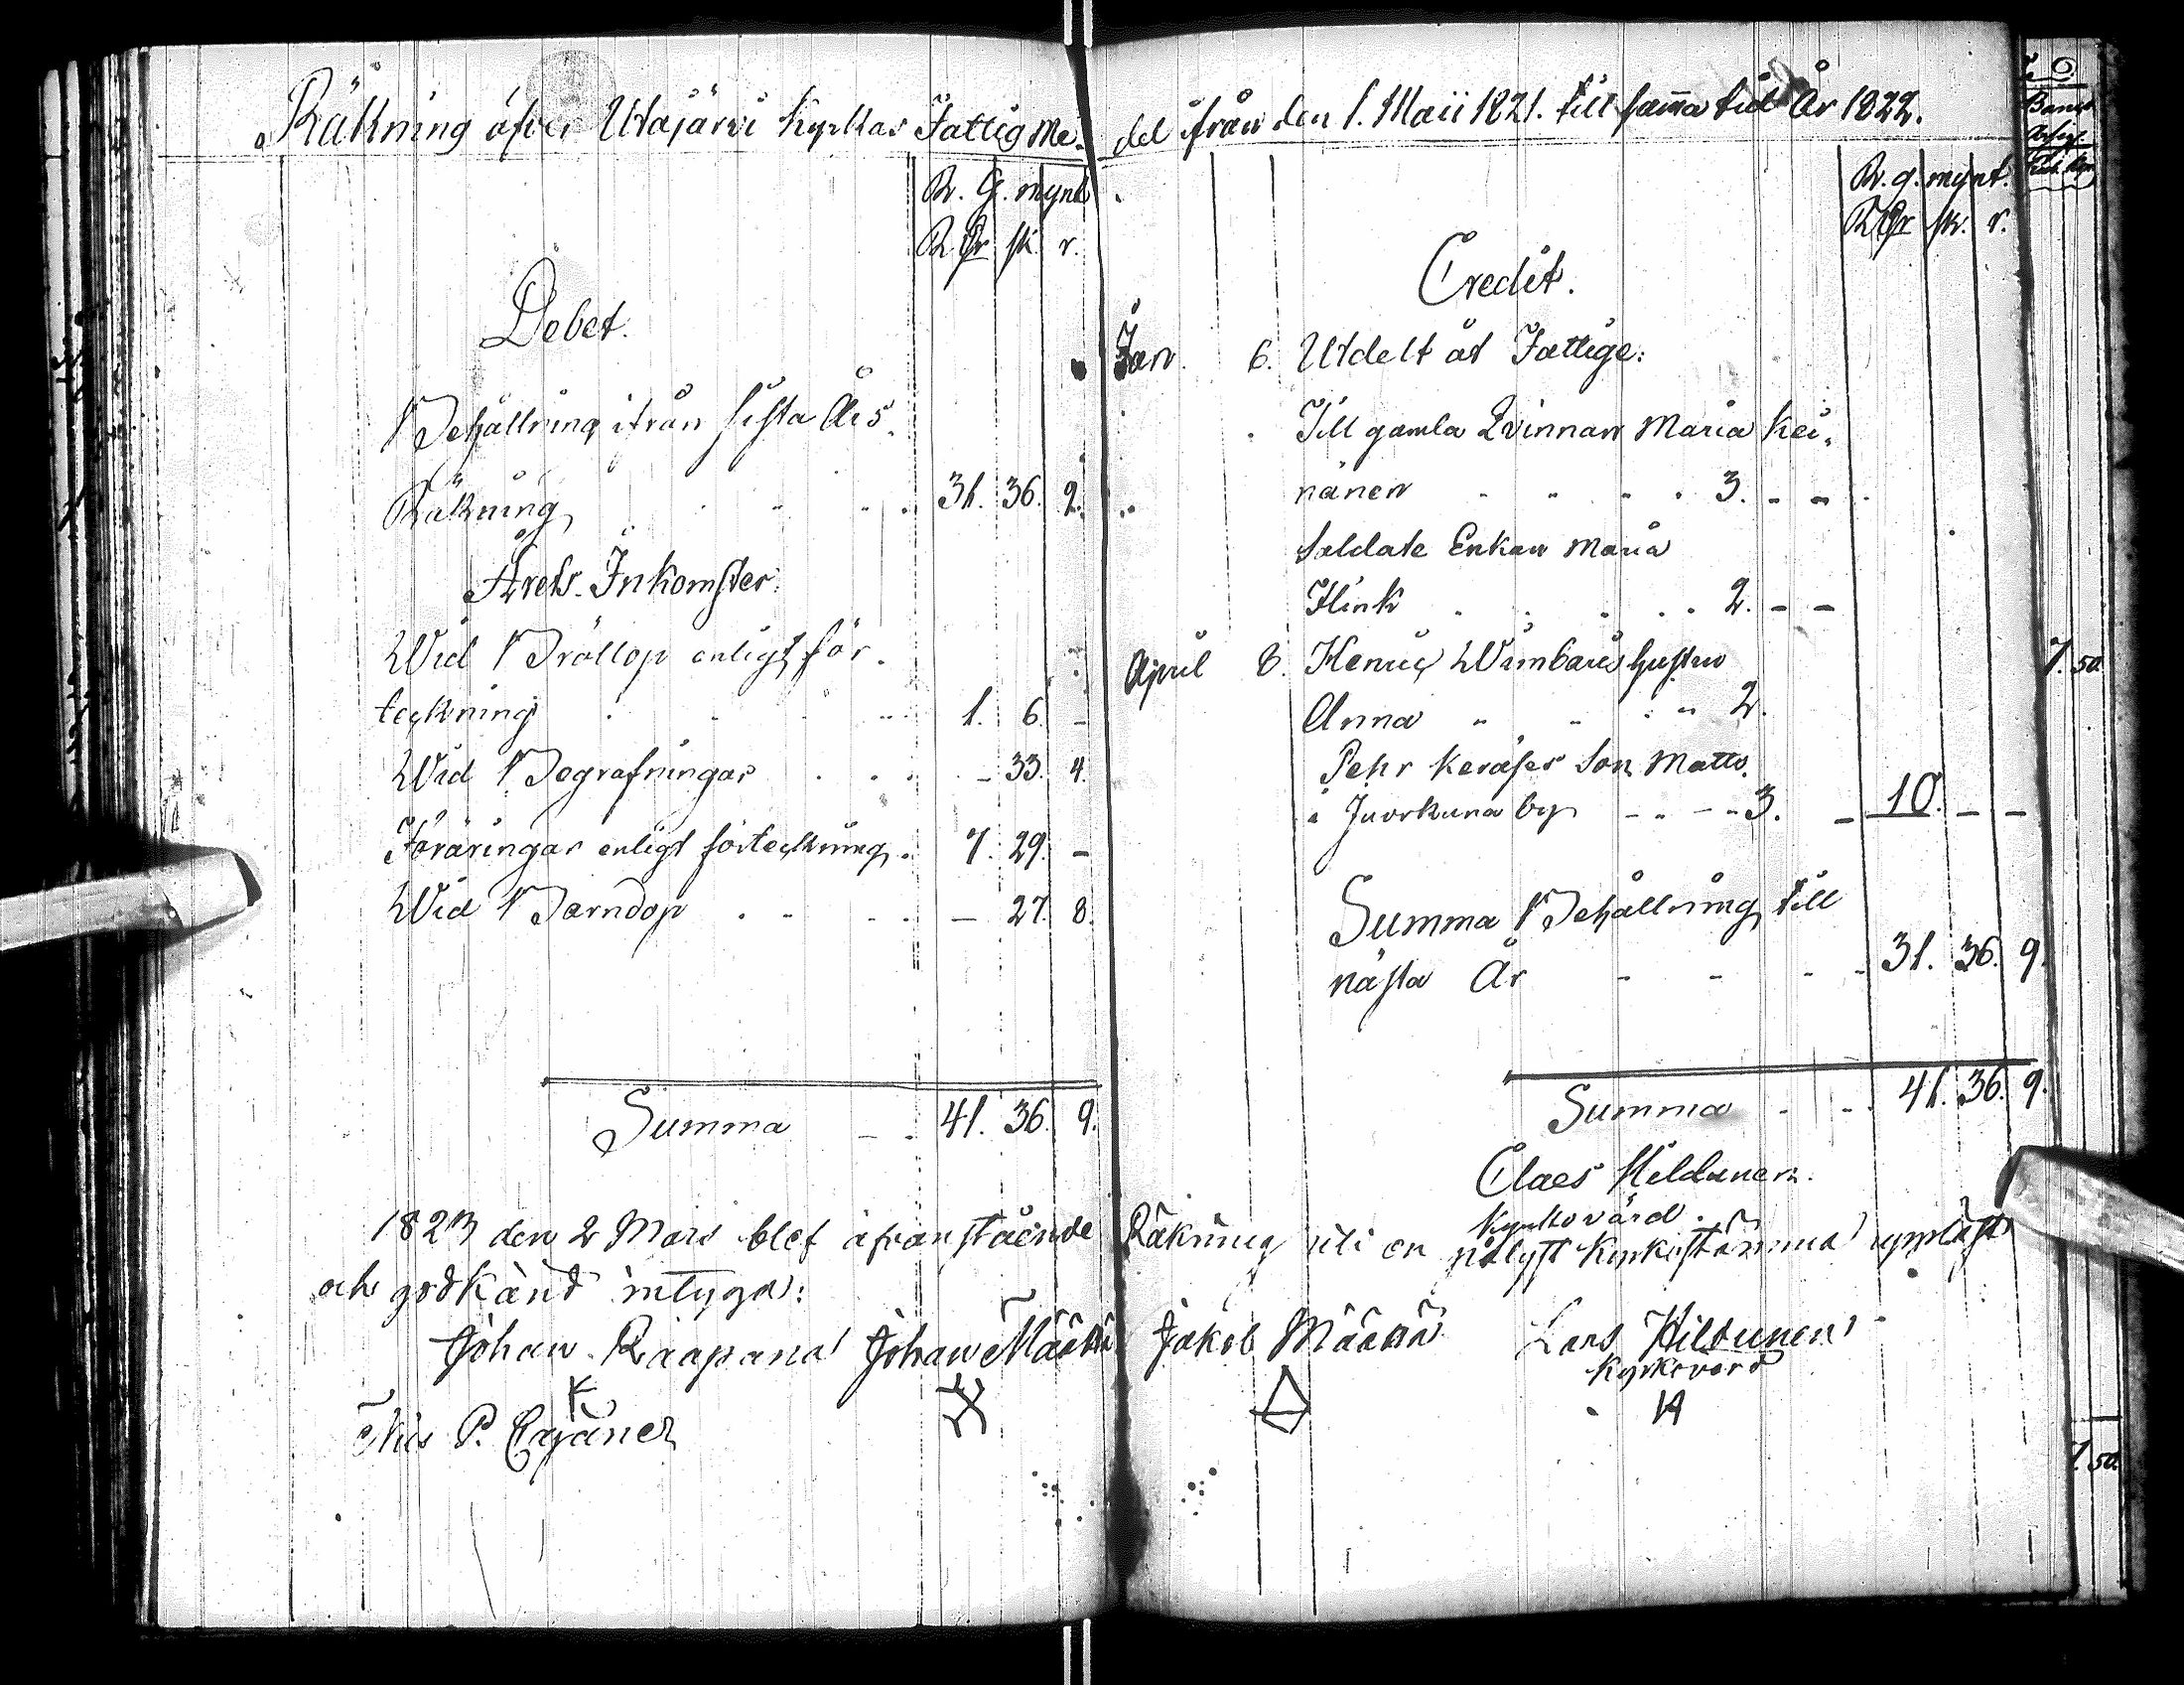 Räkning öfver Utajärvi Kyrkas Fattig Me-
R. G. mynt
R Dr sk. r.
Debet.
Behållning ifrån sista Års
Räkning 31. 36. 2.
Årets Inkomster.
Wid Bröllop enligt för-
teckning 1. 6. -
Wid Begrafningar - 33. 4.
Föräringar enligt förteckning. 7. 29. -
Wid Barndop - 27. 8.
Summa 41. 36. 9.
del ifrån den 1. Maii 1821. till samma tid År 1822.
R. g. mynt.
R Dr sk. r.
Credit.
Jan. 6. Utdelt åt Fattige:
Till gamla Qvinnan Maria Kei-
nänen 3. - -
Soldate Enkan Maria
Flink 2. - -
April 8. Henric Wimbaris hustru
Anna 2.
Pehr Keräses Son Matts
i Juorkuna by 3. - 10. - -
Summa Behållning till
nästa År 31. 36. 9.
Summa 41. 36. 9.
Claes Hildunen.
Kyrkovärd.
1823 den 2 Mars blef åfvanstående Räkning uti en pålyst Kyrkostämma upläst
och godkänd intyga:
Johan Raapana Johan Määttä Jakob Määttä Lars Hiltunen
Kyrkovärd
K
Nils P. Cajaner
7. 50.
7. 50.